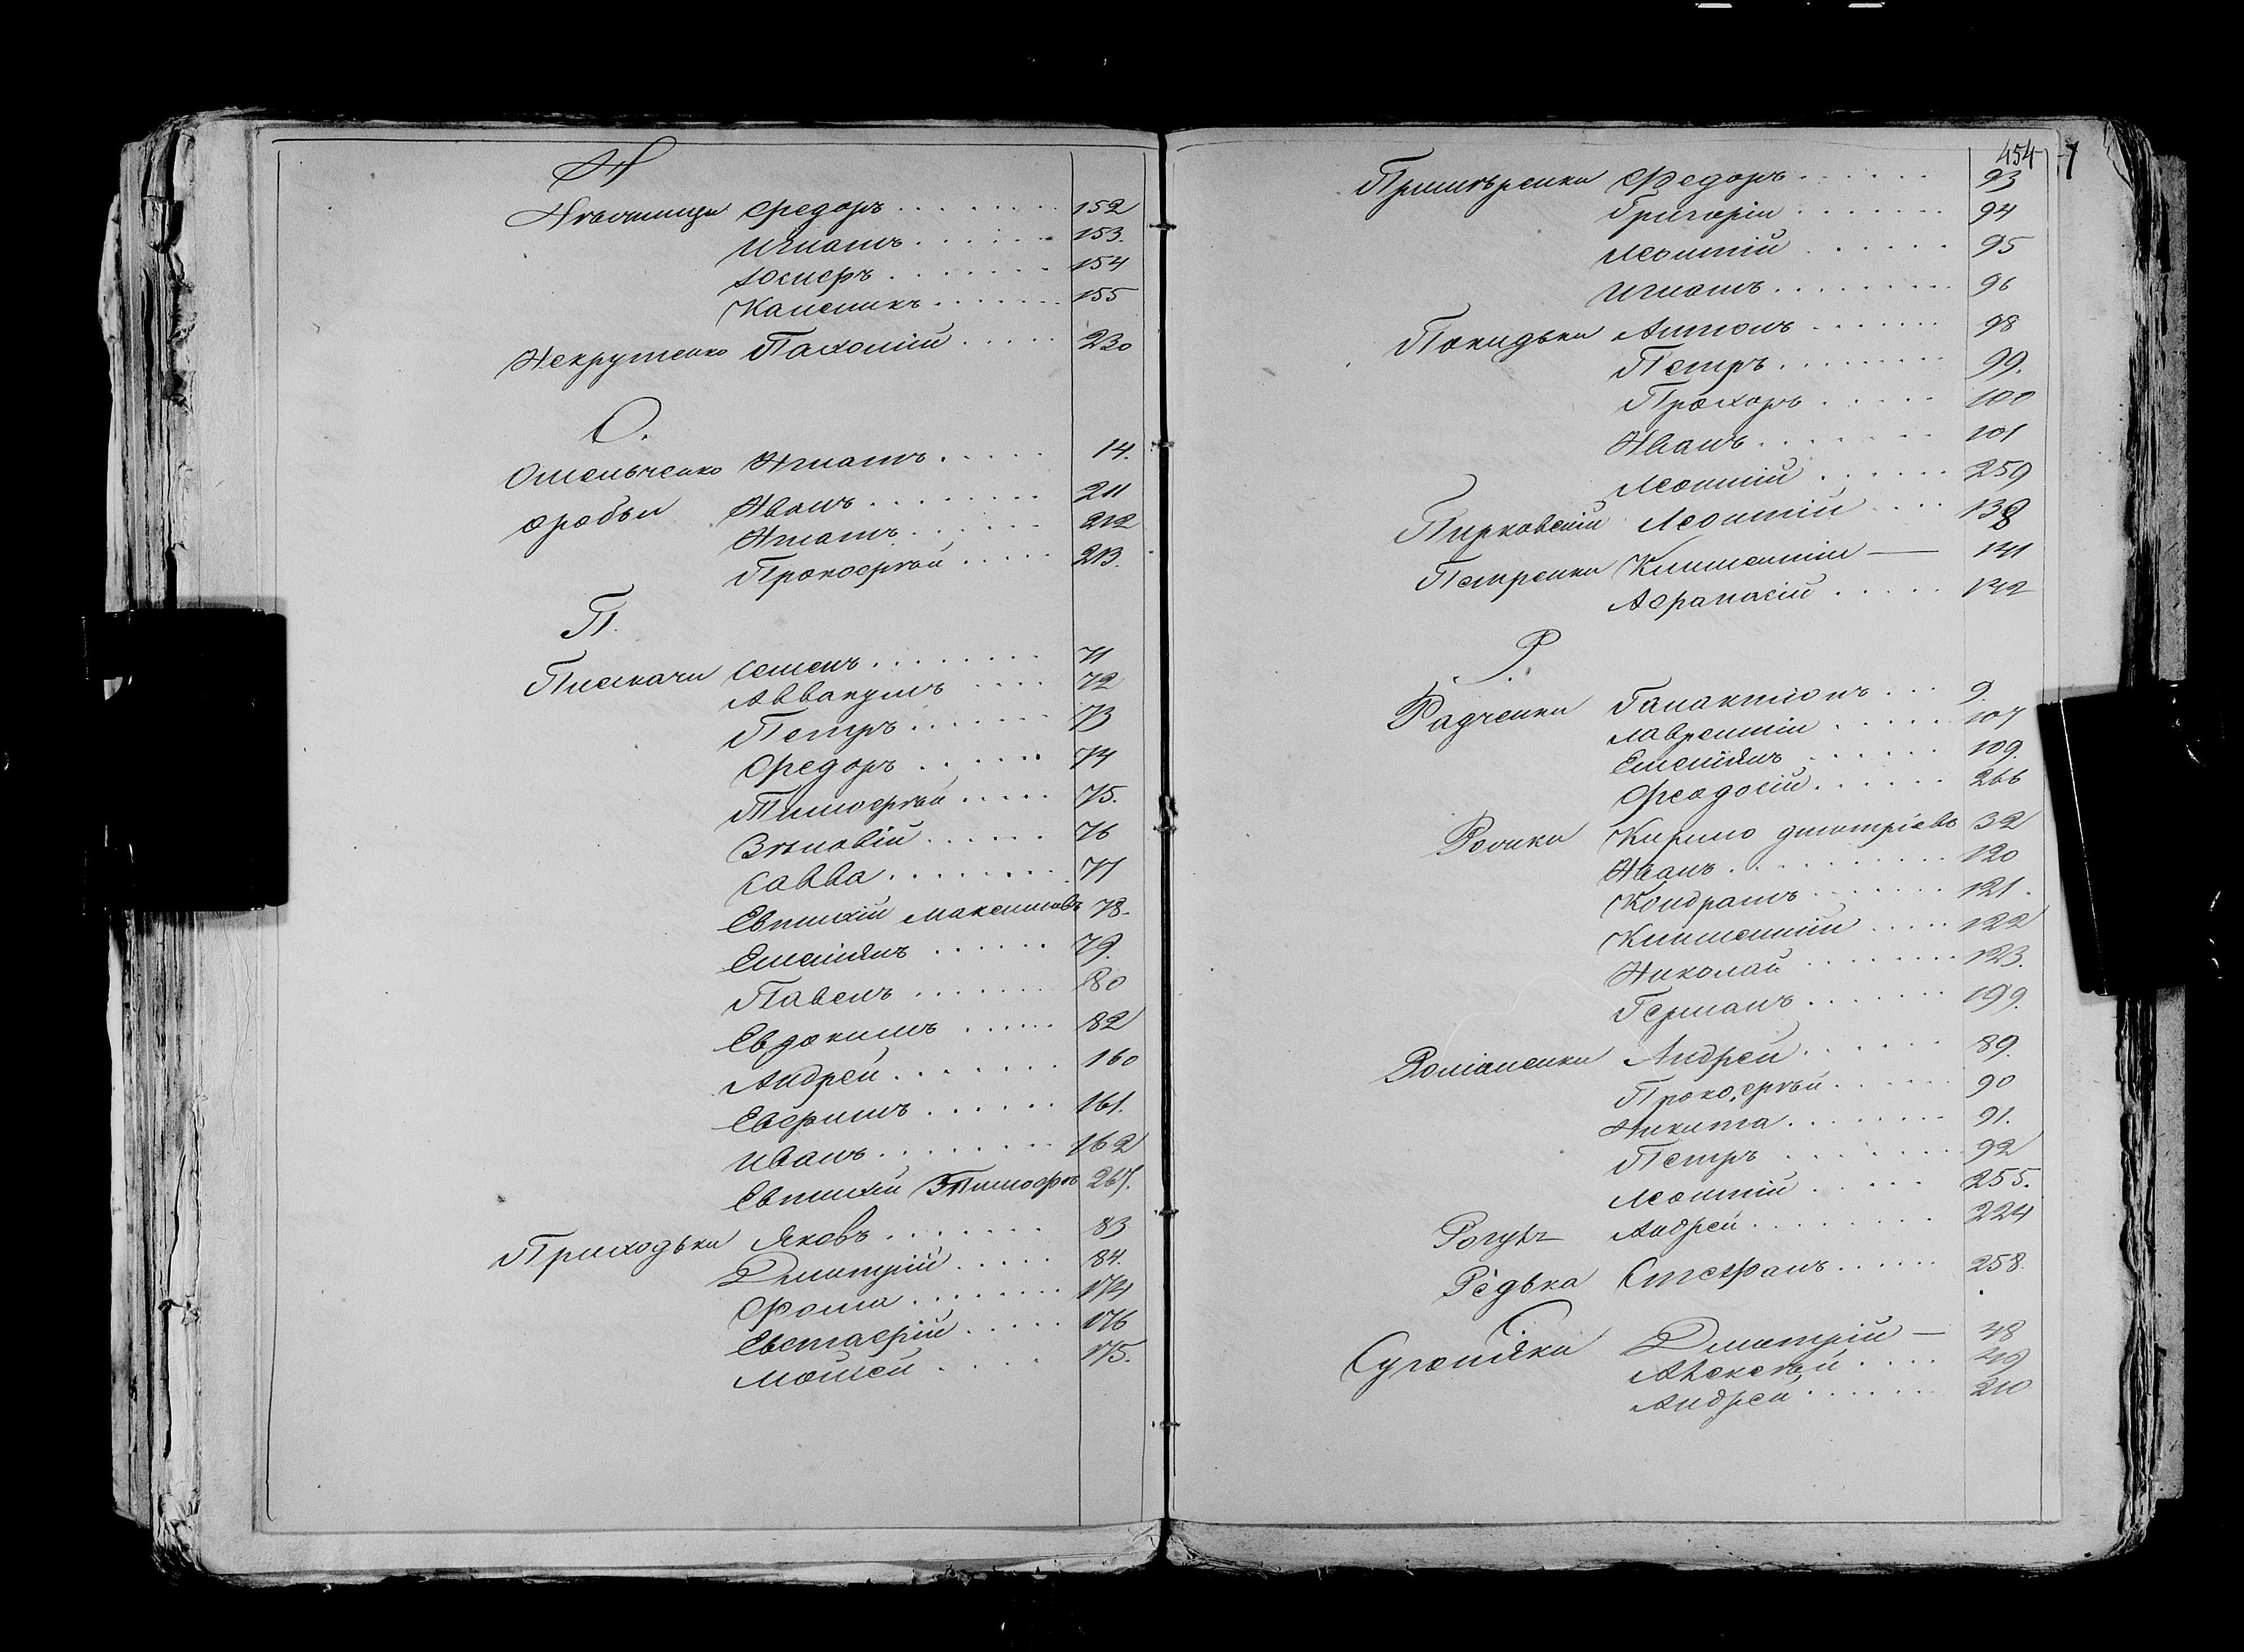 Н
Федоръ 152
Игнатъ 153.
Іосифъ 154
Каленикъ 155
Некрутенко Пахомій 230
О.
Омельченко Игнатъ 14.
Оробьи Иванъ 211
Игнатъ 212
Прокофѣй 213.
П.
Пискачи Семенъ 71
Аввакумъ 72
Петръ 73
Федоръ 74
Тимофѣй 75.
Зѣновій 76
Савва 77
Евтихій Максимовъ 78.
Емеліянъ 79.
Павелъ 80
Евдокимъ 82
Андрей 160
Ефримъ 161.
Иванъ 162
Евтихій Тимофѣ 267.
Приходьки Яковъ 83
Дмитрій 84.
Фома 174
Евстафій 176
Мойсей 175.
454
Федоръ 93
Григорій 94
Леонтій 95
Игнатъ 96
Покидьки Антонъ 98
Петръ 99.
Прохоръ 100
Иванъ 101
Леонтій 259
Пирковскій Леонтій 139
Петренки Климентій 141
Афанасій 142
Р.
Радченки Галактіонъ 9.
Лаврентій 107
Емеліянъ 109.
Феодосій 266
Кирило Дмитріевъ 32
Иванъ 120
Кондратъ 121.
Климентій 122
Николай 123.
Германъ 199.
Романенки Андрей 89.
Прокофѣй 90
Никита 91.
Петръ 92
Леонтій 255.
Андрей 224
Рѣдька Стефанъ 258.
С.
Сугоняки Дмитрій 48
Алексѣй 49
Андрей 210